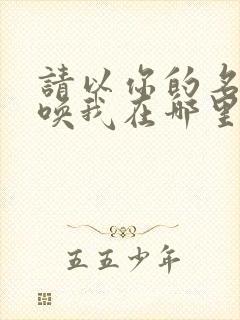 請以你的名
喚我在哪里
五五少年